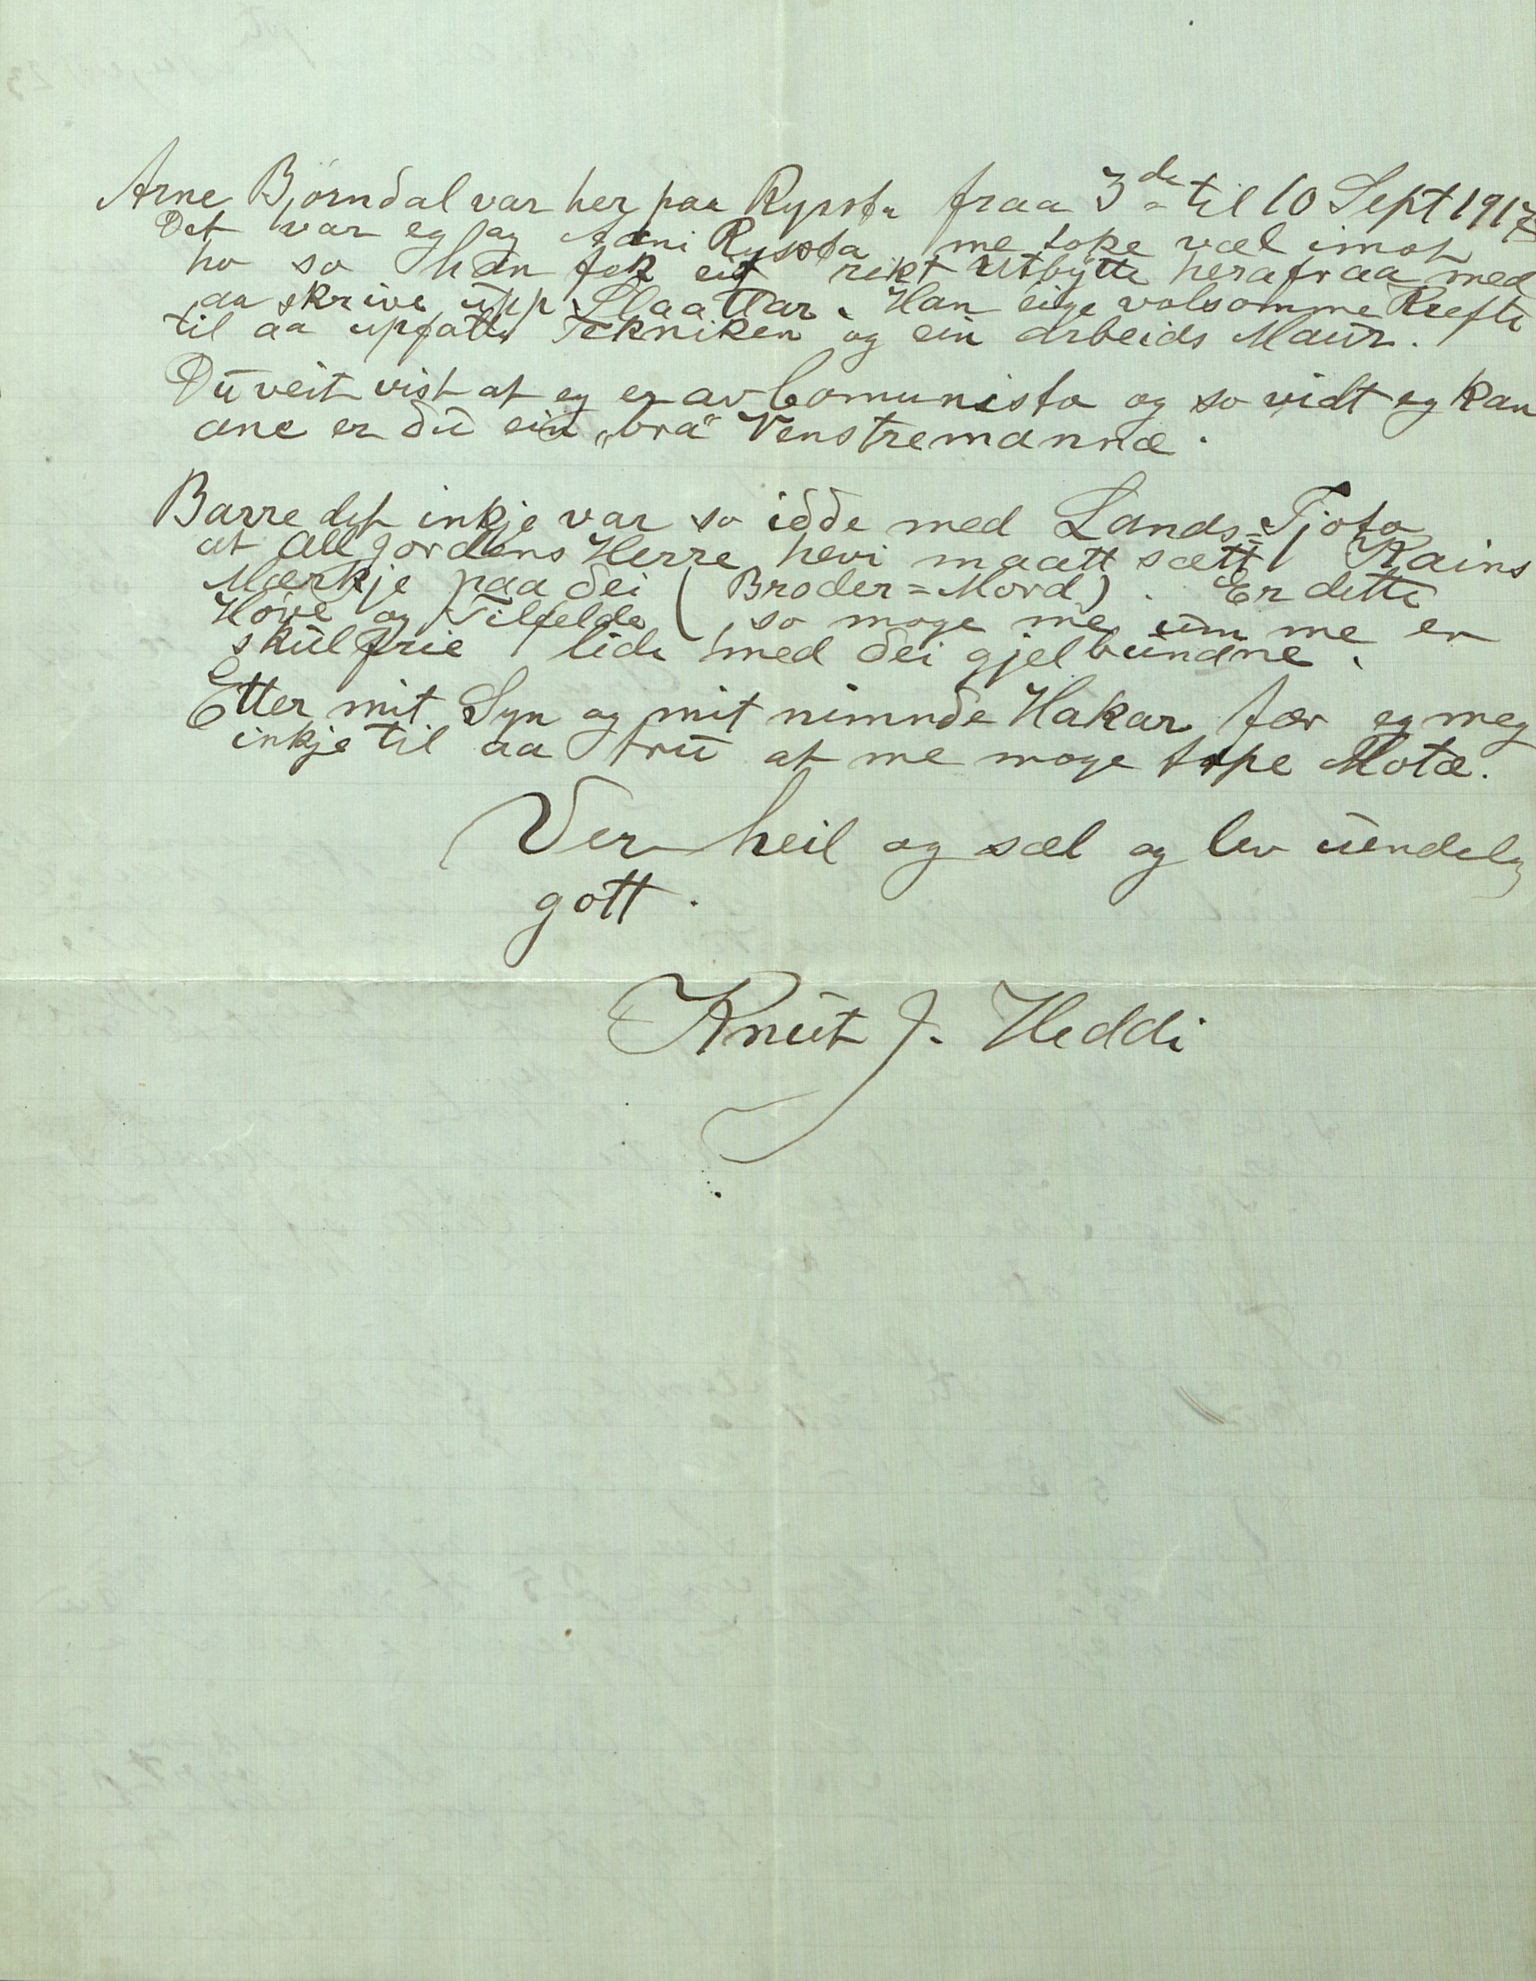 Arne Bjørndal var her paa Rysstæ fraa 3de til 10 Sept 1917
Det var eg og Arni Ryssta me toke væl imot
ho so han fek eit rikt Utbytte herafraa med
aa skrive upp Slaattar. Han eige volsomme Krefti
til aa upfatte Tekniken og ein arbeids Maur.
Du veit vist at eg er av Comunisto og so vidt eg kan
ane er du ein „bra" Venstremannæ.
Barre det inkje var so idde med Lands=Tjoto
at All gordens Herre hevi maatt sætt Kains
Mærkje paa dei (Broder=Mord). Er dette
Høve og Tilfelde, so moge me um me er
skulfrie lide med dei gjelbundne.
Etter mit Syn og mit nimnde Hakar fær eg meg
inkje til aa tru at me moge tape Motæ.
Ver heil og sæl og lev uendeleg
gott.
Knut J. Heddi